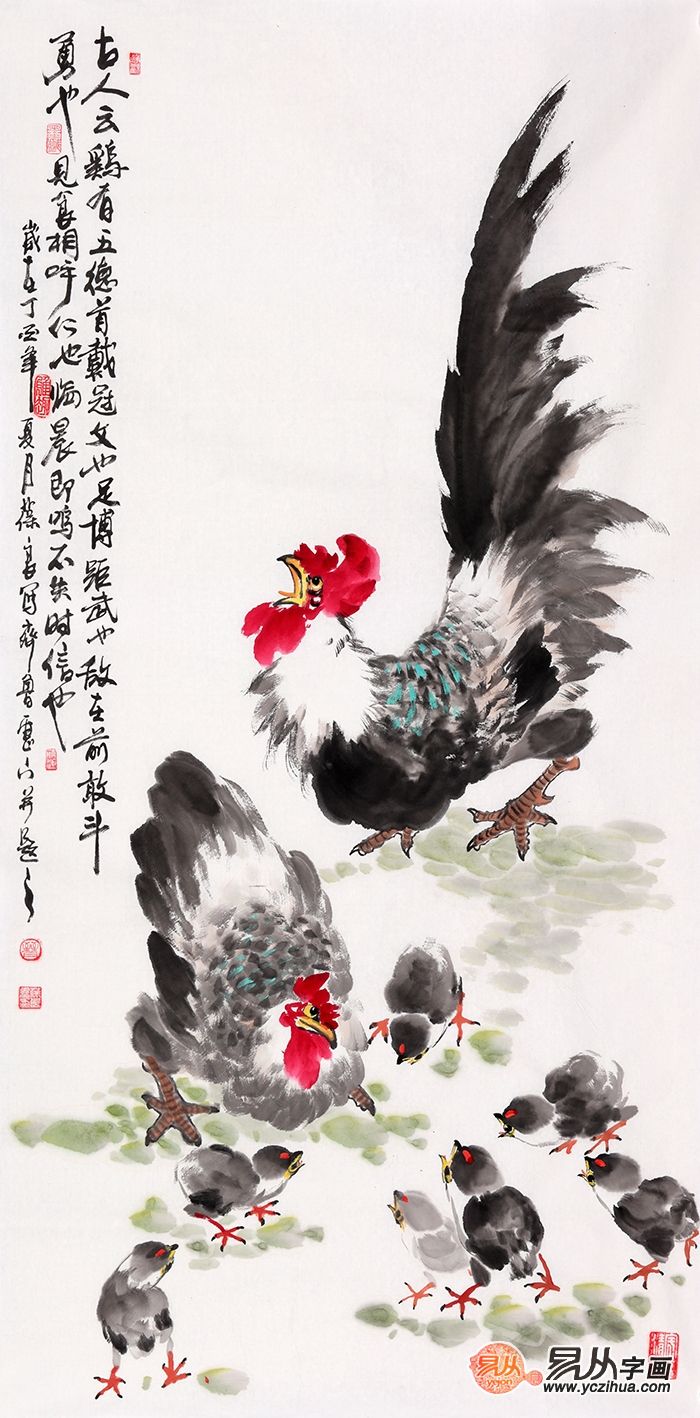 古人云鷄有五德首戴冠文也足搏距武也敌在前敢斗
勇也 見食相呼仁也临晨即鸣不失时信也
歲在丁酉年夏月 寫齊鲁 并题
易从
yejon
易从字画
www.yczihua.com